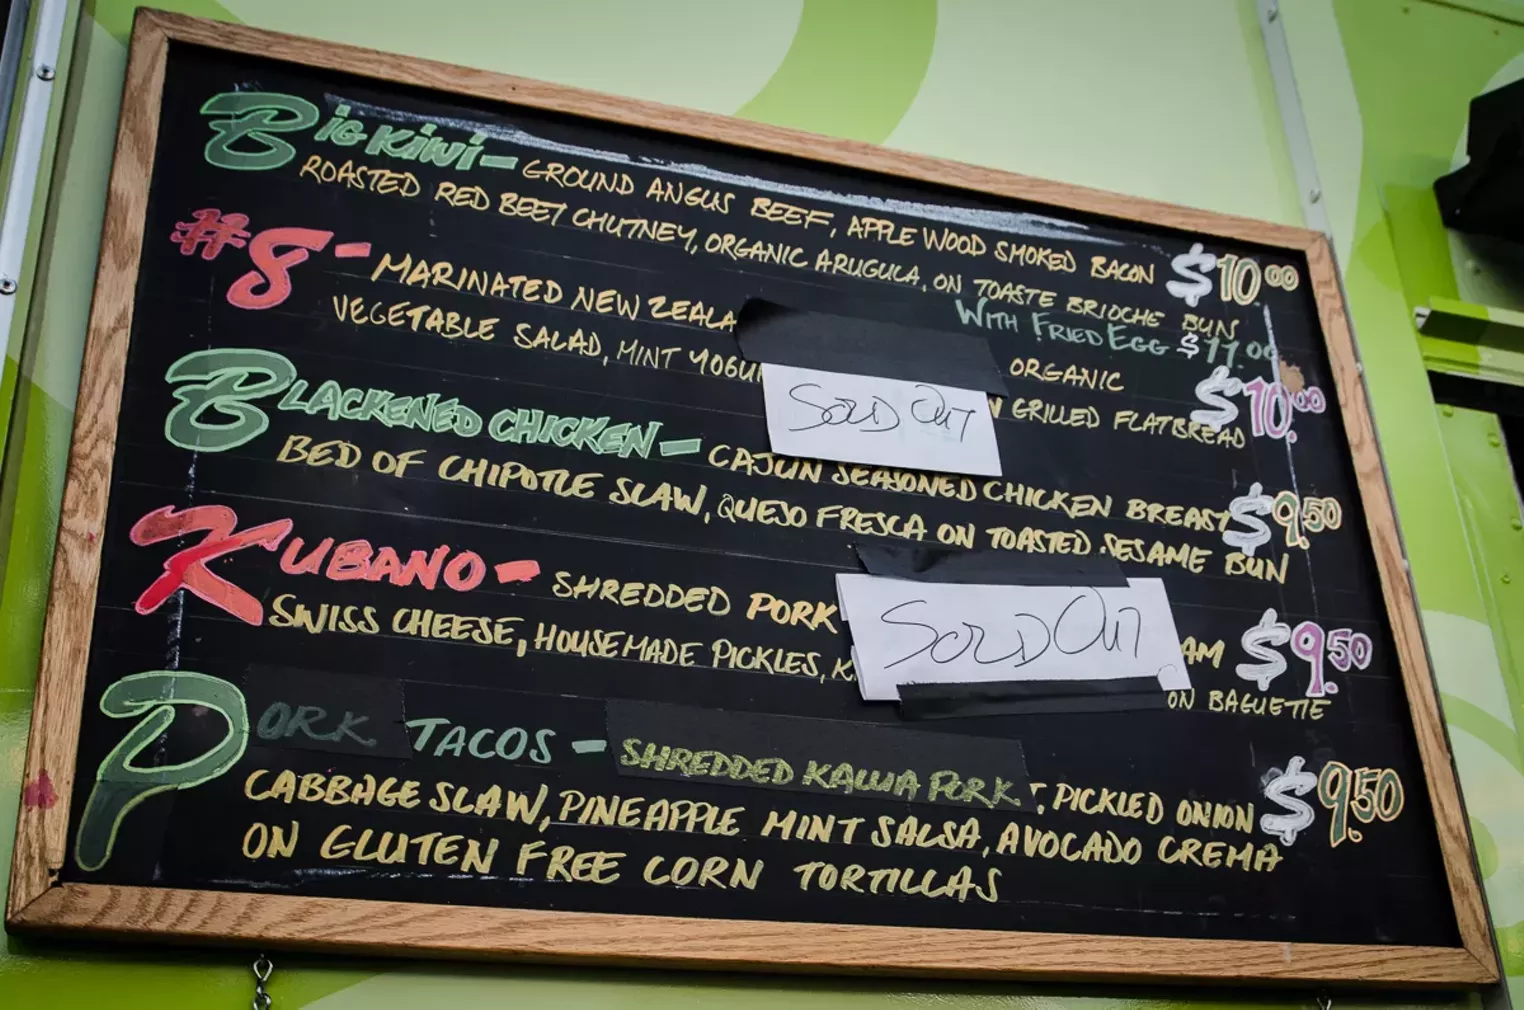 BIG KIWI - GROUND ANGUS BEEF, APPLE WOOD SMOKED BACON $10.00
ROASTED RED BEET CHUTNEY, ORGANIC ARUGULA, ON TOASTE BRIOCHE BUN
WITH FRIED EGG $11.00
#8 - MARINATED NEW ZEALA ORGANIC $10.00
VEGETABLE SALAD, MINT YOGU GRILLED FLATBREAD
SOLD OUT
BLACKENED CHICKEN - CAJUN SEASONED CHICKEN BREAST $9.50
BED OF CHIPOTLE SLAW, QUESO FRESCA ON TOASTED SESAME BUN
KUBANO - SHREDDED PORK AM $9.50
SWISS CHEESE, HOUSEMADE PICKLES, K ON BAGUETTE
SOLD OUT
PORK TACOS - SHREDDED KALUA PORK, PICKLED ONION $9.50
CABBAGE SLAW, PINEAPPLE MINT SALSA, AVOCADO CREMA
ON GLUTEN FREE CORN TORTILLAS